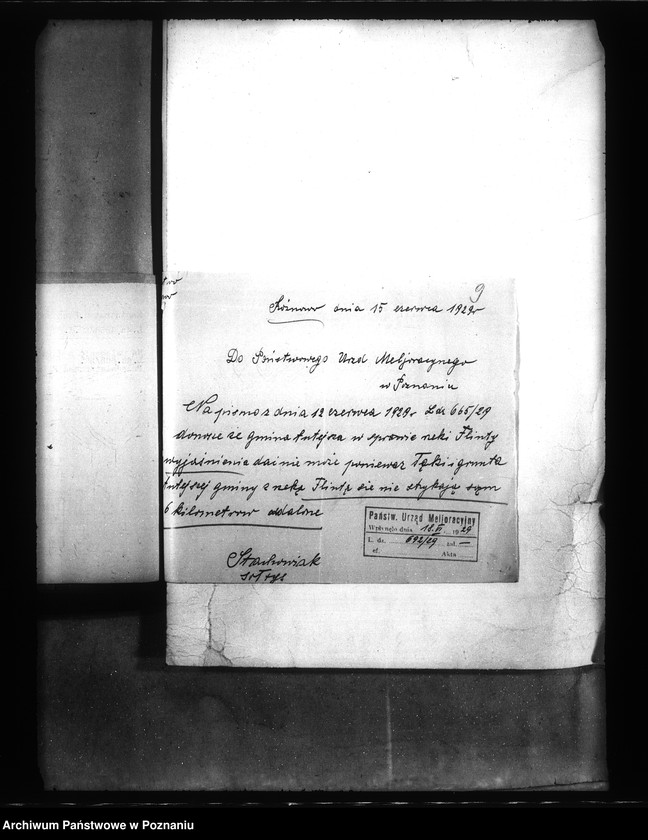 9
Rożnowo dnia 15 czerwca 1929r
Do Państwowego Urzd Meljoracyjnego
w Poznaniu
Na pismo z dnia 12 czerwca 1929r L.dz 665/29
donosze ze gmina tutejsza w sprawie rzeki Flinty
wyjaśnienia dac nie może poniewaz Łąki i grunta
tutejszej gminy z rzeką Flintą sie nie stykają są
6 kilometrow oddalone
Stachowiak
sołtys
Państw. Urząd Meljoracyjny
Wpłynęło dnia 18.VI 1929
L. dz. 692/29 zał. —
ef. Akta
Archiwum Państwowe w Poznaniu